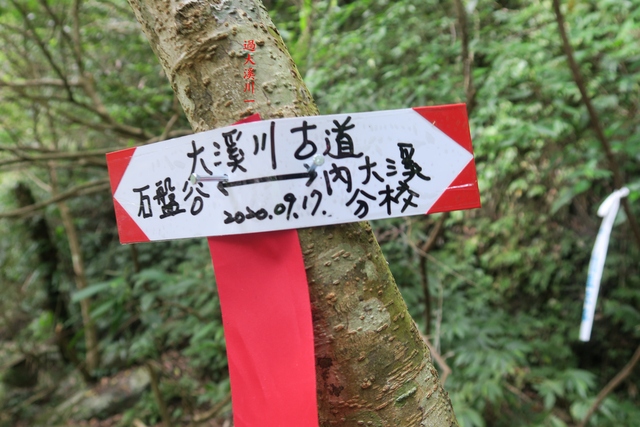 過大溪川一
大溪川古道
石盤谷 ↔ 內大溪
分校
2020.09.17.